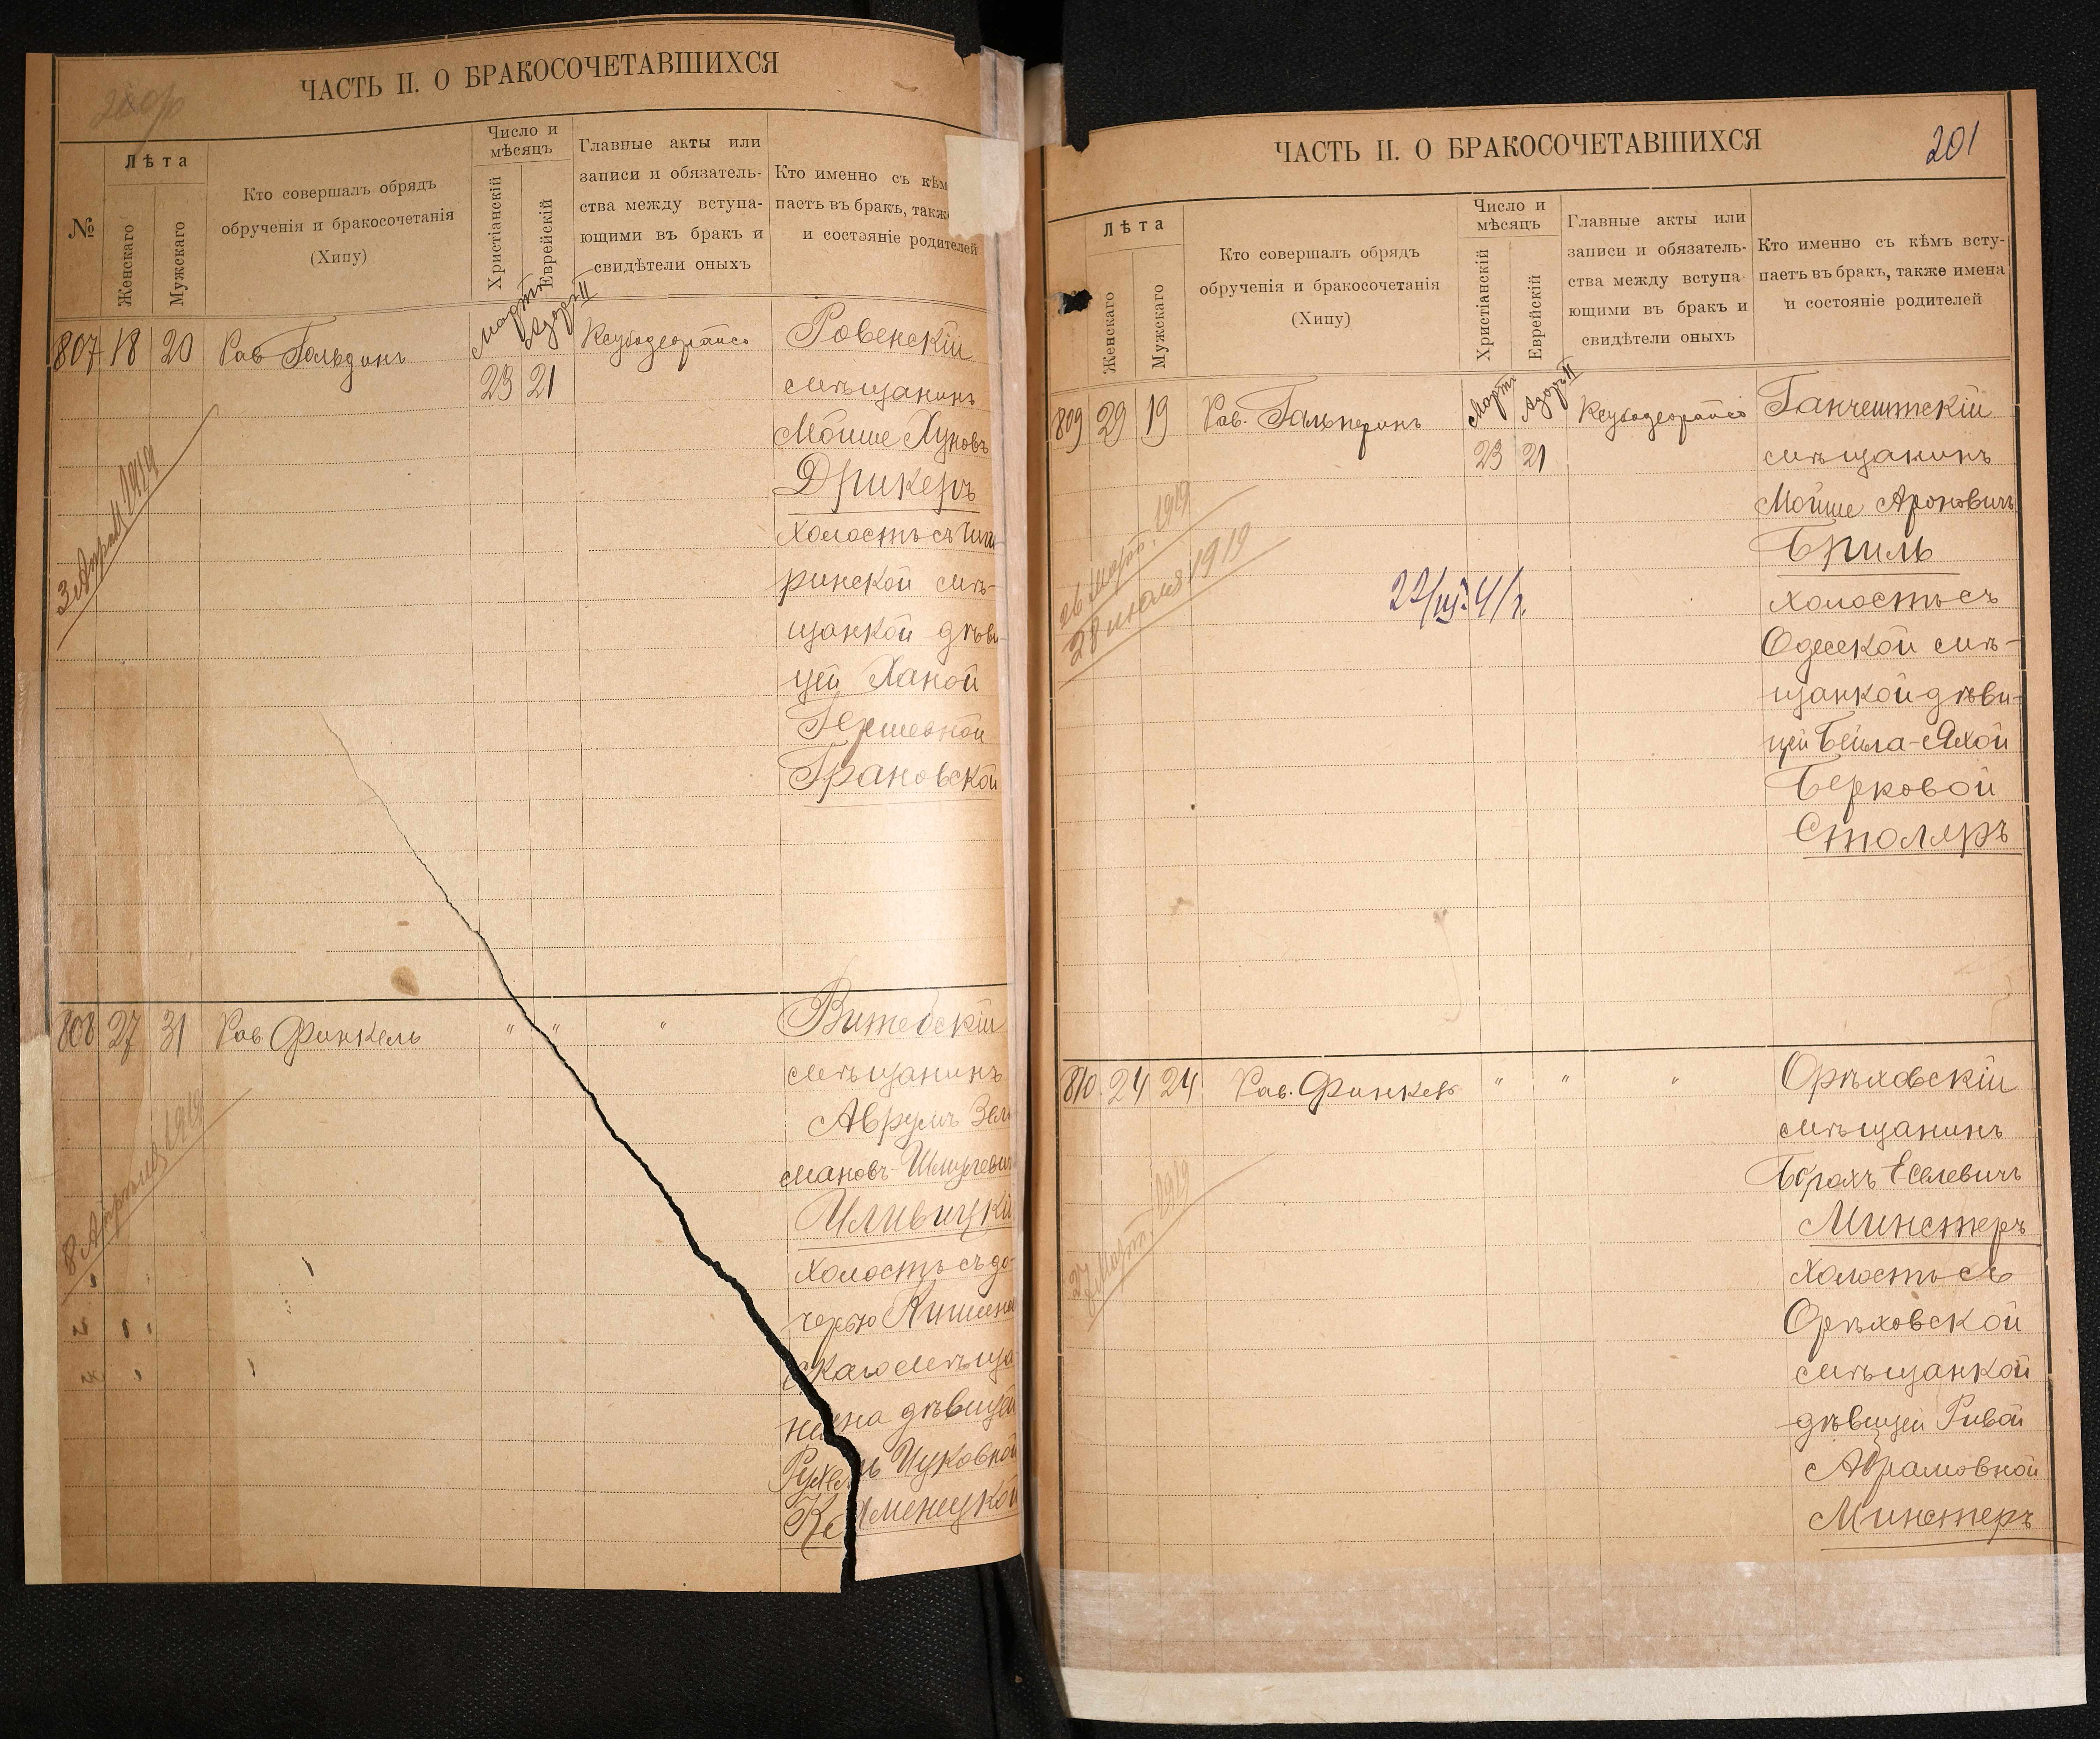 ЧАСТЬ II. О БРАКОСОЧЕТАВШИХСЯ
№
Лѣта
Женскаго
Мужскаго
Кто совершалъ обрядъ
обрученія и бракосочетанія
(Хипу)
Число и
мѣсяцъ
Христіанскій
Еврейскій
Главные акты или
записи и обязатель-
ства между вступа-
ющими въ бракъ и
свидѣтели оныхъ
Кто именно съ кѣм
паетъ въ бракъ, такж
и состояніе родителей
807 18 20 Рав Гольдинъ
Мартъ Адаръ II
23 21
3 Апрѣля 1919
Ровенскій
мѣщанинъ
Мойше Хуновъ
Дрикеръ
холостъ съ Чиги-
ринской мѣ-
щанкой дѣви-
цей Ханой
Гершевной
Грановской
808 27 31 Рав Финкель " " "
8 Апрѣля 1919
Витебскій
мѣщанинъ
Аврумъ Зел
мановъ-Шмулевич
Иливицкій
холостъ съ до-
черью Кишинев
скаго мѣща
нина дѣвицей
Цуковной
Каменецкой
ЧАСТЬ II. О БРАКОСОЧЕТАВШИХСЯ
201
Лѣта
Женскаго
Мужскаго
Кто совершалъ обрядъ
обрученія и бракосочетанія
(Хипу)
Число и
мѣсяцъ
Христіанскій
Еврейскій
Главные акты или
записи и обязатель-
ства между вступа-
ющими въ бракъ и
свидѣтели оныхъ
Кто именно съ кѣмъ всту-
паетъ въ бракъ, также имена
и состояніе родителей
809 29 19 Рав. Гальперинъ
Мартъ Адаръ II
23 21
26 Март. 1919
28 июля 1919
22/III-41 г.
Ганчештскій
мѣщанинъ
Мойше Ароновичъ
Бриль
холостъ съ
Одесской мѣ-
щанкой дѣви-
цей Бейла-Яхой
Берковой
Столяръ
810. 24 24 Рав. Финкель " " "
27 Март. 1919
Орѣховскій
мѣщанинъ
Борахъ Еселевичъ
Минстеръ
холостъ съ
Орѣховской
мѣщанкой
дѣвицей Ривой
Абрамовной
Минстеръ